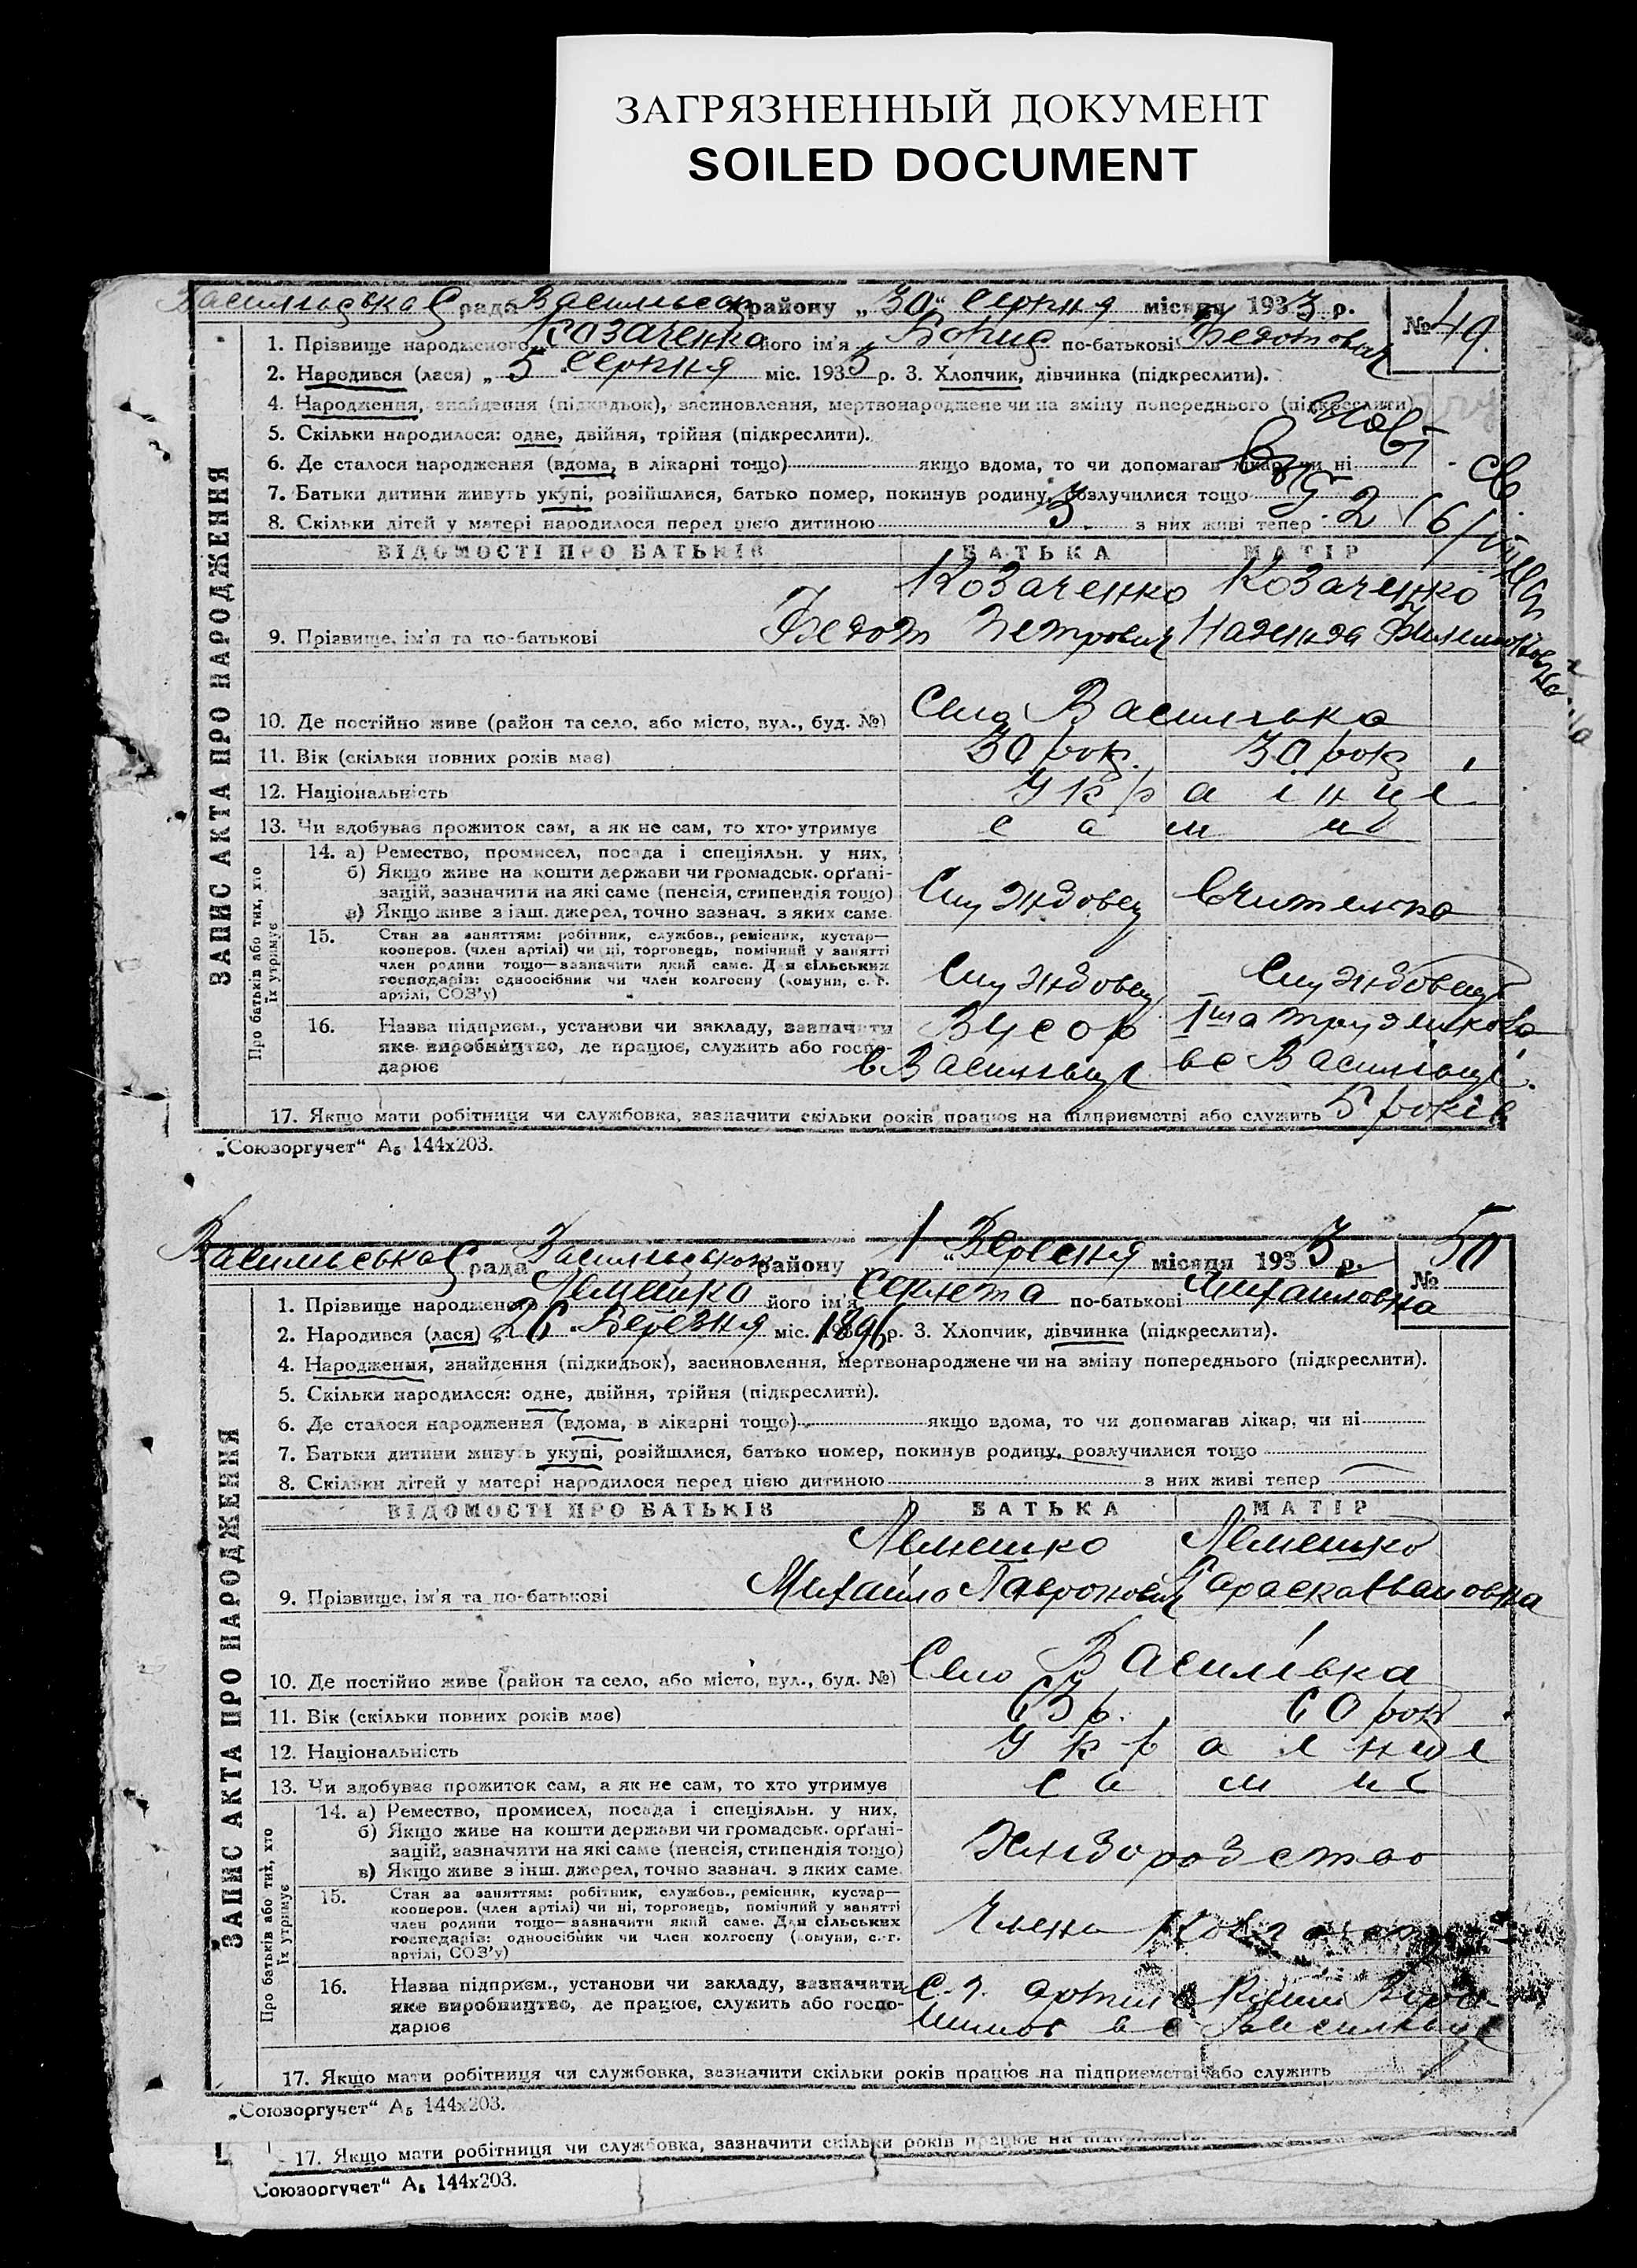 ЗАГРЯЗНЕННЫЙ ДОКУМЕНТ
SOILED DOCUMENT
рада району „30“ Серпня місяця 1933 р. № 49.
1. Прізвище народженого Козаченко його ім'я Борис по-батькові Федотович
2. Народився (лася) „5 Серпня міс. 1933 р. 3. Хлопчик, дівчинка (підкреслити).
4. Народження, знайдення (підкидьок), засиновлення, мертвонароджене чи на зміну попереднього (підкреслити)
5. Скільки народилося: одне, двійня, трійня (підкреслити).
6. Де сталося народження (вдома, в лікарні тощо) якщо вдома, то чи допомагав лікар, чи ні
7. Батьки дитини живуть укупі, розійшлися, батько помер, покинув родину, розлучилися тощо
8. Скільки дітей у матері народилося перед цією дитиною 3 з них живі тепер 2
ВІДОМОСТІ ПРО БАТЬКІВ БАТЬКА МАТІР
Козаченко Козаченко
9. Прізвище, ім'я та по-батькові Федот Петрович
10. Де постійно живе (район та село, або місто, вул., буд. №) Село
11. Вік (скільки повних років має) 30 рок. 30 рок
12. Національність Українці
13. Чи здобуває прожиток сам, а як не сам, то хто утримує самі
14. а) Ремество, промисел, посада і спеціяльн. у них,
б) Якщо живе на кошти держави чи громадськ. орґані-
зацій, зазначити на які саме (пенсія, стипендія тощо) Службовец Вчителька
в) Якщо живе з інш. джерел, точно зазнач. з яких саме
15. Стан за заняттям: робітник, службов., ремісник, кустар—
кооперов. (член артілі) чи ні, торговець, помічний у занятті
член родини тощо—зазначити який саме. Для сільських
господарів: одноосібник чи член колгоспу (комуни, с. г. Службовец
артілі, СОЗ'у)
16. Назва підприєм., установи чи закладу, зазначити
яке виробництво, де працює, служить або госпо-
дарює
17. Якщо мати робітниця чи службовка, зазначити скільки років працює на підприємстві або служить 5 років
ЗАПИС АКТА ПРО НАРОДЖЕННЯ
Про батьків або тих, хто їх утримує
„Союзоргучет“ А₅ 144х203.
рада району 1 “ Вересня місяця 1933 р. № 50
1. Прізвище народженого Лемешко його ім'я по-батькові Михаиловна
2. Народився (лася) „26 Березня міс. 1896 р. 3. Хлопчик, дівчинка (підкреслити).
4. Народження, знайдення (підкидьок), засиновлення, мертвонароджене чи на зміну попереднього (підкреслити).
5. Скільки народилося: одне, двійня, трійня (підкреслити).
6. Де сталося народження (вдома, в лікарні тощо) якщо вдома, то чи допомагав лікар, чи ні
7. Батьки дитини живуть укупі, розійшлися, батько помер, покинув родину, розлучилися тощо
8. Скільки дітей у матері народилося перед цією дитиною з них живі тепер
ВІДОМОСТІ ПРО БАТЬКІВ БАТЬКА МАТІР
Лемешко Лемешко
9. Прізвище, ім'я та по-батькові Михайло Ивановна
10. Де постійно живе (район та село, або місто, вул., буд. №) Село Василівка
11. Вік (скільки повних років має) 63 р. 60 рок
12. Національність Українці
13. Чи здобуває прожиток сам, а як не сам, то хто утримує самі
14. а) Ремество, промисел, посада і спеціяльн. у них,
б) Якщо живе на кошти держави чи громадськ. орґані-
зацій, зазначити на які саме (пенсія, стипендія тощо)
в) Якщо живе з інш. джерел, точно зазнач. з яких саме
15. Стан за заняттям: робітник, службов., ремісник, кустар—
кооперов. (член артілі) чи ні, торговець, помічний у занятті
член родини тощо—зазначити який саме. Для сільських
господарів: одноосібник чи член колгоспу (комуни, с.-г.
артілі, СОЗ'у)
16. Назва підприєм., установи чи закладу, зазначити
яке виробництво, де працює, служить або госпо-
дарює
17. Якщо мати робітниця чи службовка, зазначити скільки років працює на підприємстві або служить
ЗАПИС АКТА ПРО НАРОДЖЕННЯ
Про батьків або тих, хто їх утримує
„Союзоргучет“ А₅ 144х203.
17. Якщо мати робітниця чи службовка, зазначити скільки років працює на
Союзоргучет“ А₅ 144х203.